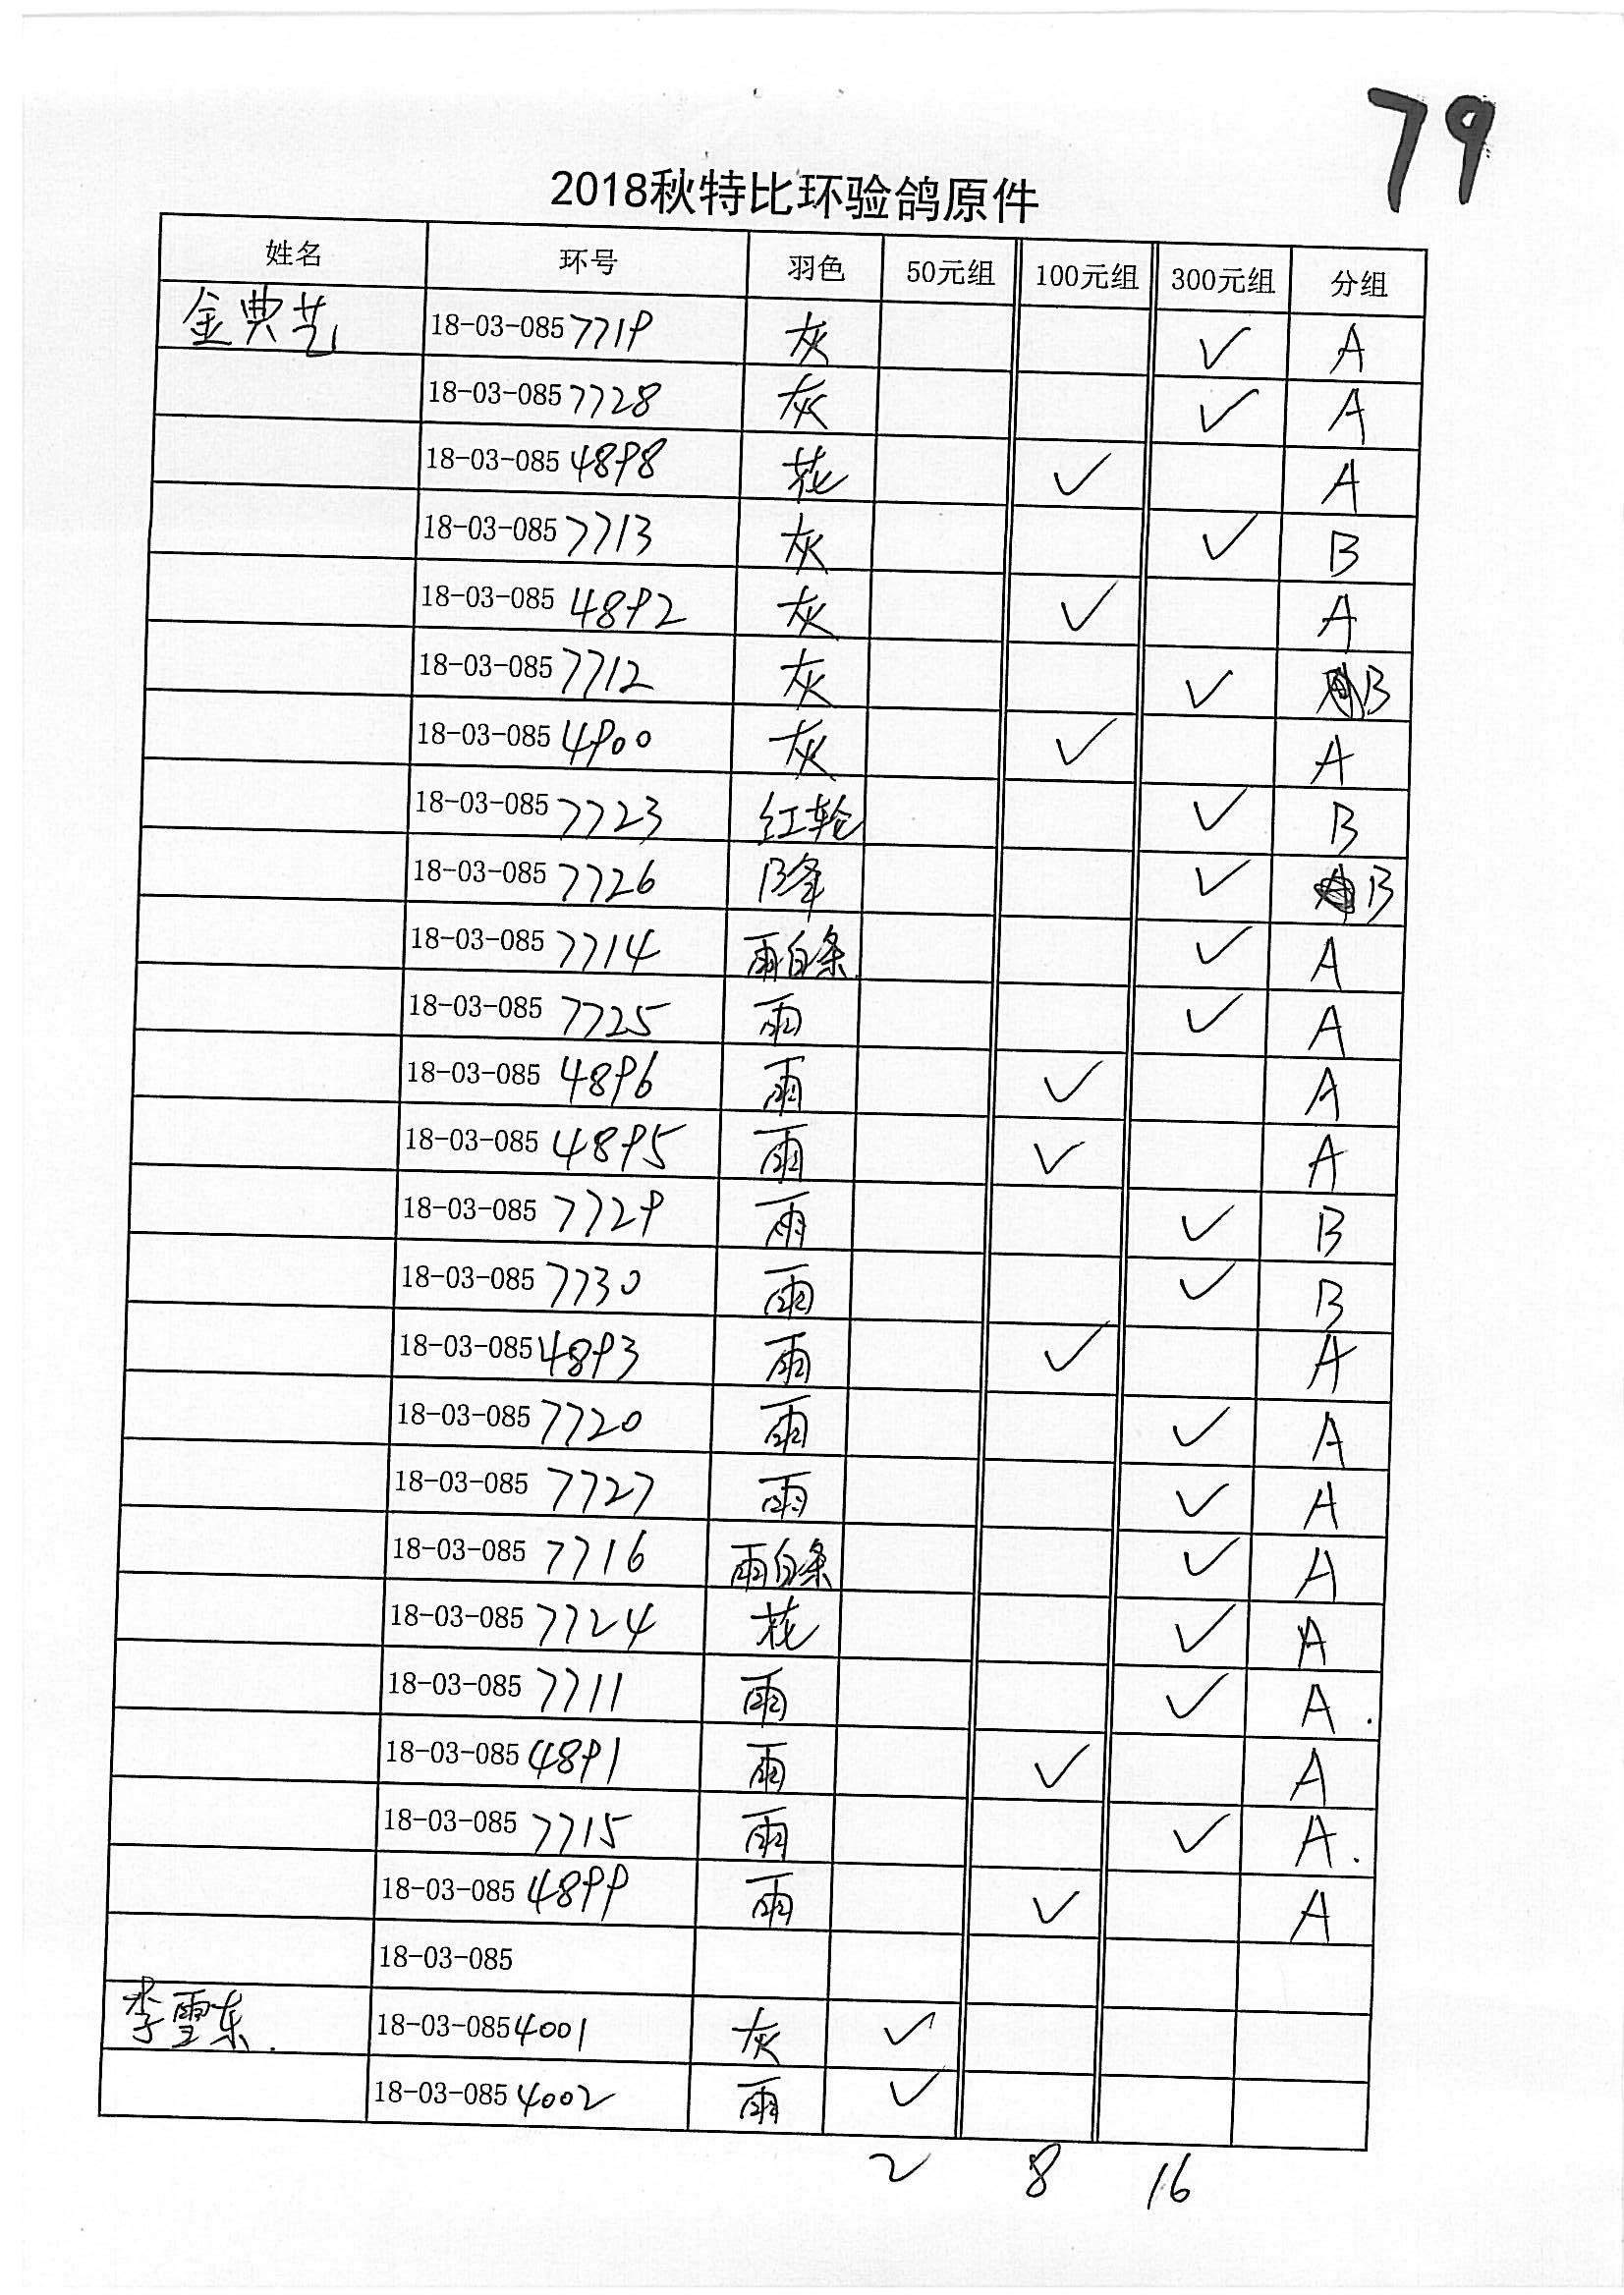 79
2018秋特比环验鸽原件
姓名 环号 羽色 50元组 100元组 300元组 分组
金典艺 18-03-085 7719 灰 ✓ A
18-03-085 7728 灰 ✓ A
18-03-085 4898 花 ✓ A
18-03-085 7713 灰 ✓ B
18-03-085 4892 灰 ✓ A
18-03-085 7712 灰 ✓ B
18-03-085 4900 灰 ✓ A
18-03-085 7723 红轮 ✓ B
18-03-085 7726 ✓ B
18-03-085 7714 雨白条 ✓ A
18-03-085 7725 雨 ✓ A
18-03-085 4896 雨 ✓ A
18-03-085 4895 雨 ✓ A
18-03-085 7729 雨 ✓ B
18-03-085 7730 雨 ✓ B
18-03-085 4893 雨 ✓ A
18-03-085 7720 雨 ✓ A
18-03-085 7727 雨 ✓ A
18-03-085 7716 雨白条 ✓ A
18-03-085 7724 花 ✓ A
18-03-085 7711 雨 ✓ A.
18-03-085 4891 雨 ✓ A
18-03-085 7715 雨 ✓ A.
18-03-085 4899 雨 ✓ A
18-03-085
李雪东. 18-03-085 4001 灰 ✓
18-03-085 4002 雨 ✓
2 8 16